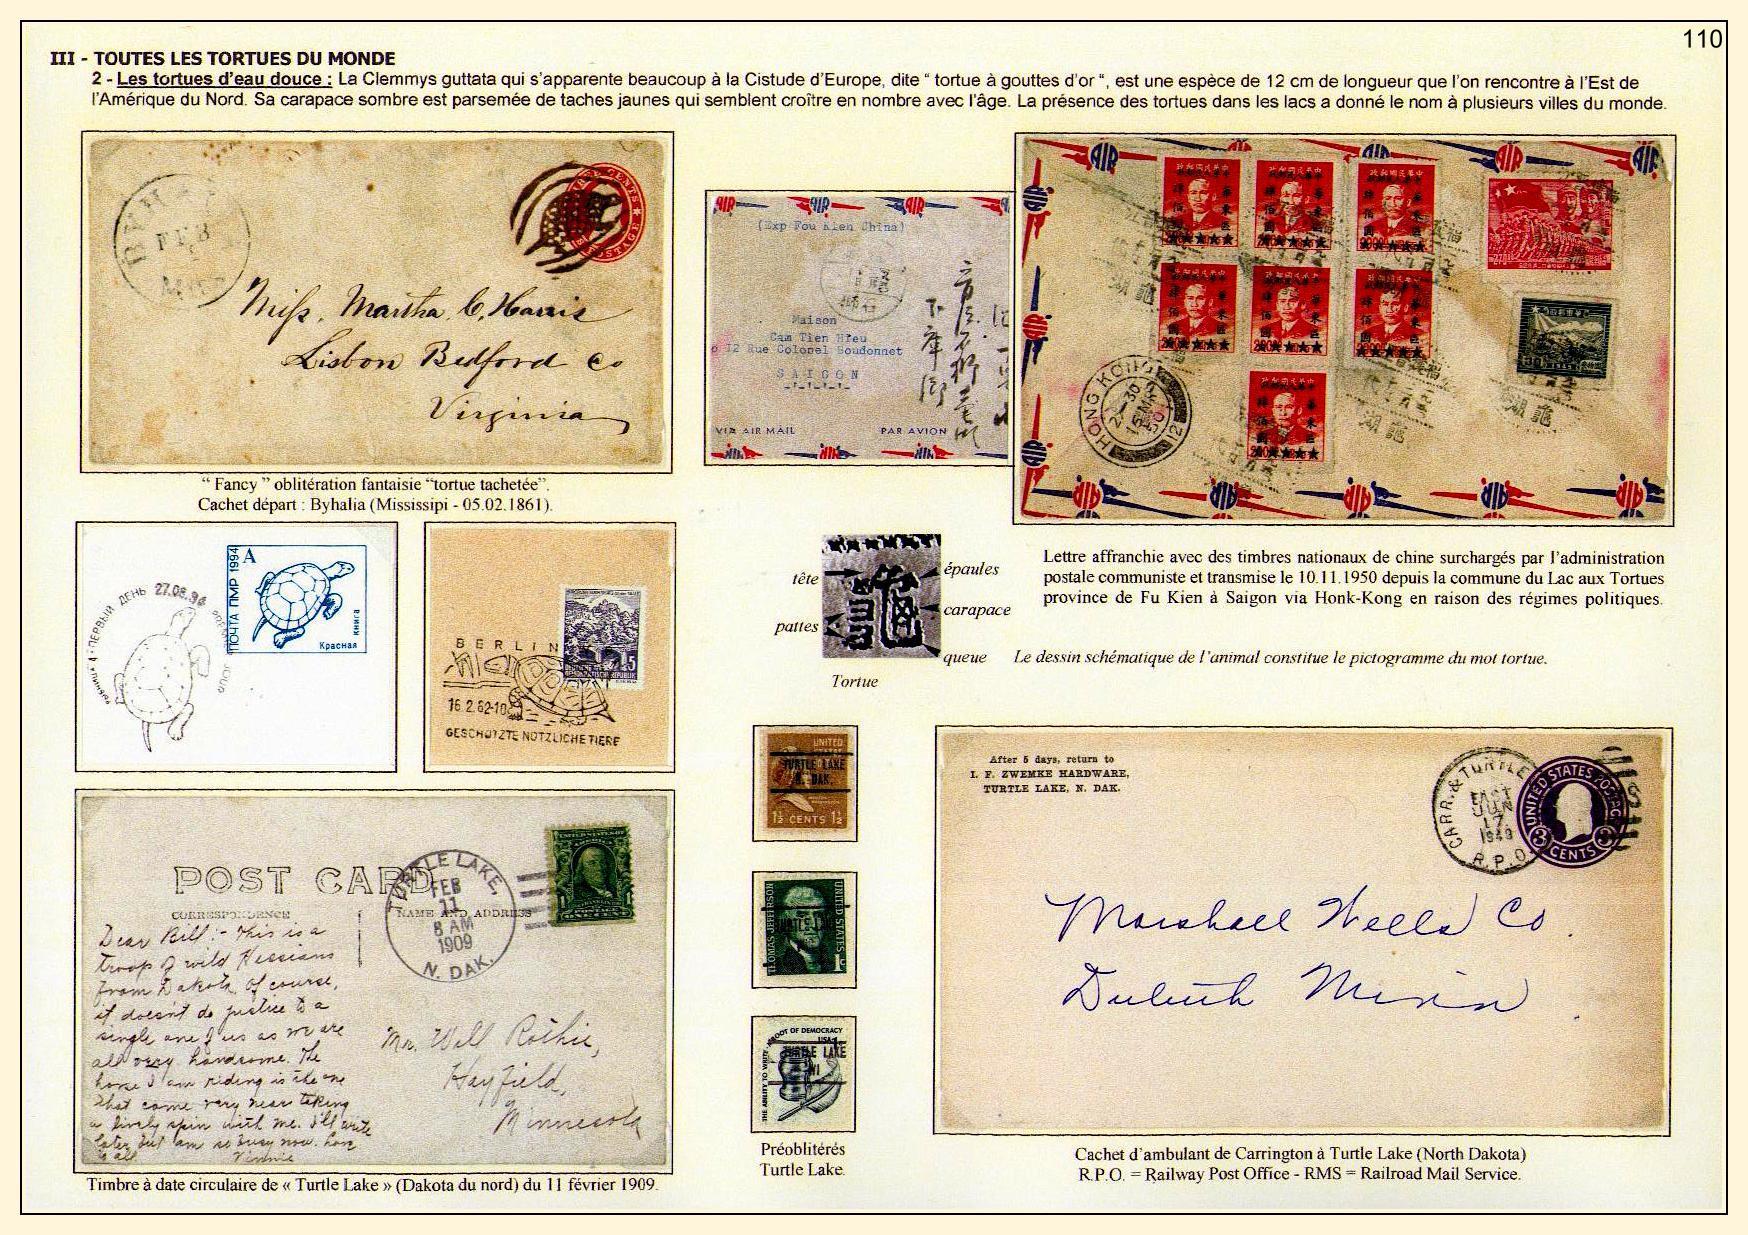 110
III - TOUTES LES TORTUES DU MONDE
2 - Les tortues d'eau douce : La Clemmys guttata qui s'apparente beaucoup à la Cistude d'Europe, dite “ tortue à gouttes d'or “, est une espèce de 12 cm de longueur que l'on rencontre à l'Est de
l'Amérique du Nord. Sa carapace sombre est parsemée de taches jaunes qui semblent croître en nombre avec l'âge. La présence des tortues dans les lacs a donné le nom à plusieurs villes du monde.
FEB
CENTS
POSTAGE
Miss. Martha C. Harris
Lisbon Bedford Co
Virginia
“ Fancy ” oblitération fantaisie “tortue tachetée”.
Cachet départ : Byhalia (Mississipi - 05.02.1861).
AIR AIR AIR
(Exp Fou Kien China)
Maison
Cam Tien Hieu
12 Rue Colonel Boudonnet
SAIGON
VIA AIR MAIL PAR AVION
AIR AIR AIR AIR
HONG KONG
龍湖
Lettre affranchie avec des timbres nationaux de chine surchargés par l'administration
postale communiste et transmise le 10.11.1950 depuis la commune du Lac aux Tortues
province de Fu Kien à Saigon via Honk-Kong en raison des régimes politiques.
tête
pattes
épaules
carapace
queue
Tortue
Le dessin schématique de l'animal constitue le pictogramme du mot tortue.
ПЕРВЫЙ ДЕНЬ 27.08.94
А
ПОЧТА ПМР 1994
Красная
книга
BERLIN
16.2.62-10
GESCHÜTZTE NÜTZLICHE TIERE
15
UNITED
TURTLE LAKE
N. DAK.
1½ CENTS 1½
THOMAS JEFFERSON
UNITED STATES
TURTLE LAKE
1c
ROOT OF DEMOCRACY
THE ABILITY TO WRITE
USA
TURTLE LAKE
WI
Préoblitérés
Turtle Lake.
POST CARD
CORRESPONDENCE
NAME AND ADDRESS
TURTLE LAKE,
FEB
11
8 AM
1909
N. DAK.
Dear Bill:- This is a
troop of wild Hessians
from Dakota. Of course,
it doesn't do justice to a
single one of us as we are
all very handsome. The
horse I am riding is the one
that came very near taking
a lively spin with me. I'll write
later but am so busy now. Love
to all. Vinnie
Mr. Will Rothie,
Hayfield,
Minnesota
Timbre à date circulaire de « Turtle Lake » (Dakota du nord) du 11 février 1909.
After 5 days, return to
I. F. ZWEMKE HARDWARE,
TURTLE LAKE, N. DAK.
CARR. & TURTLE
EAST
JUN
17
1949
R.P.O.
UNITED STATES POSTAGE
3 CENTS 3
Marshall Wells Co.
Duluth Minn.
Cachet d'ambulant de Carrington à Turtle Lake (North Dakota)
R.P.O. = Railway Post Office - RMS = Railroad Mail Service.